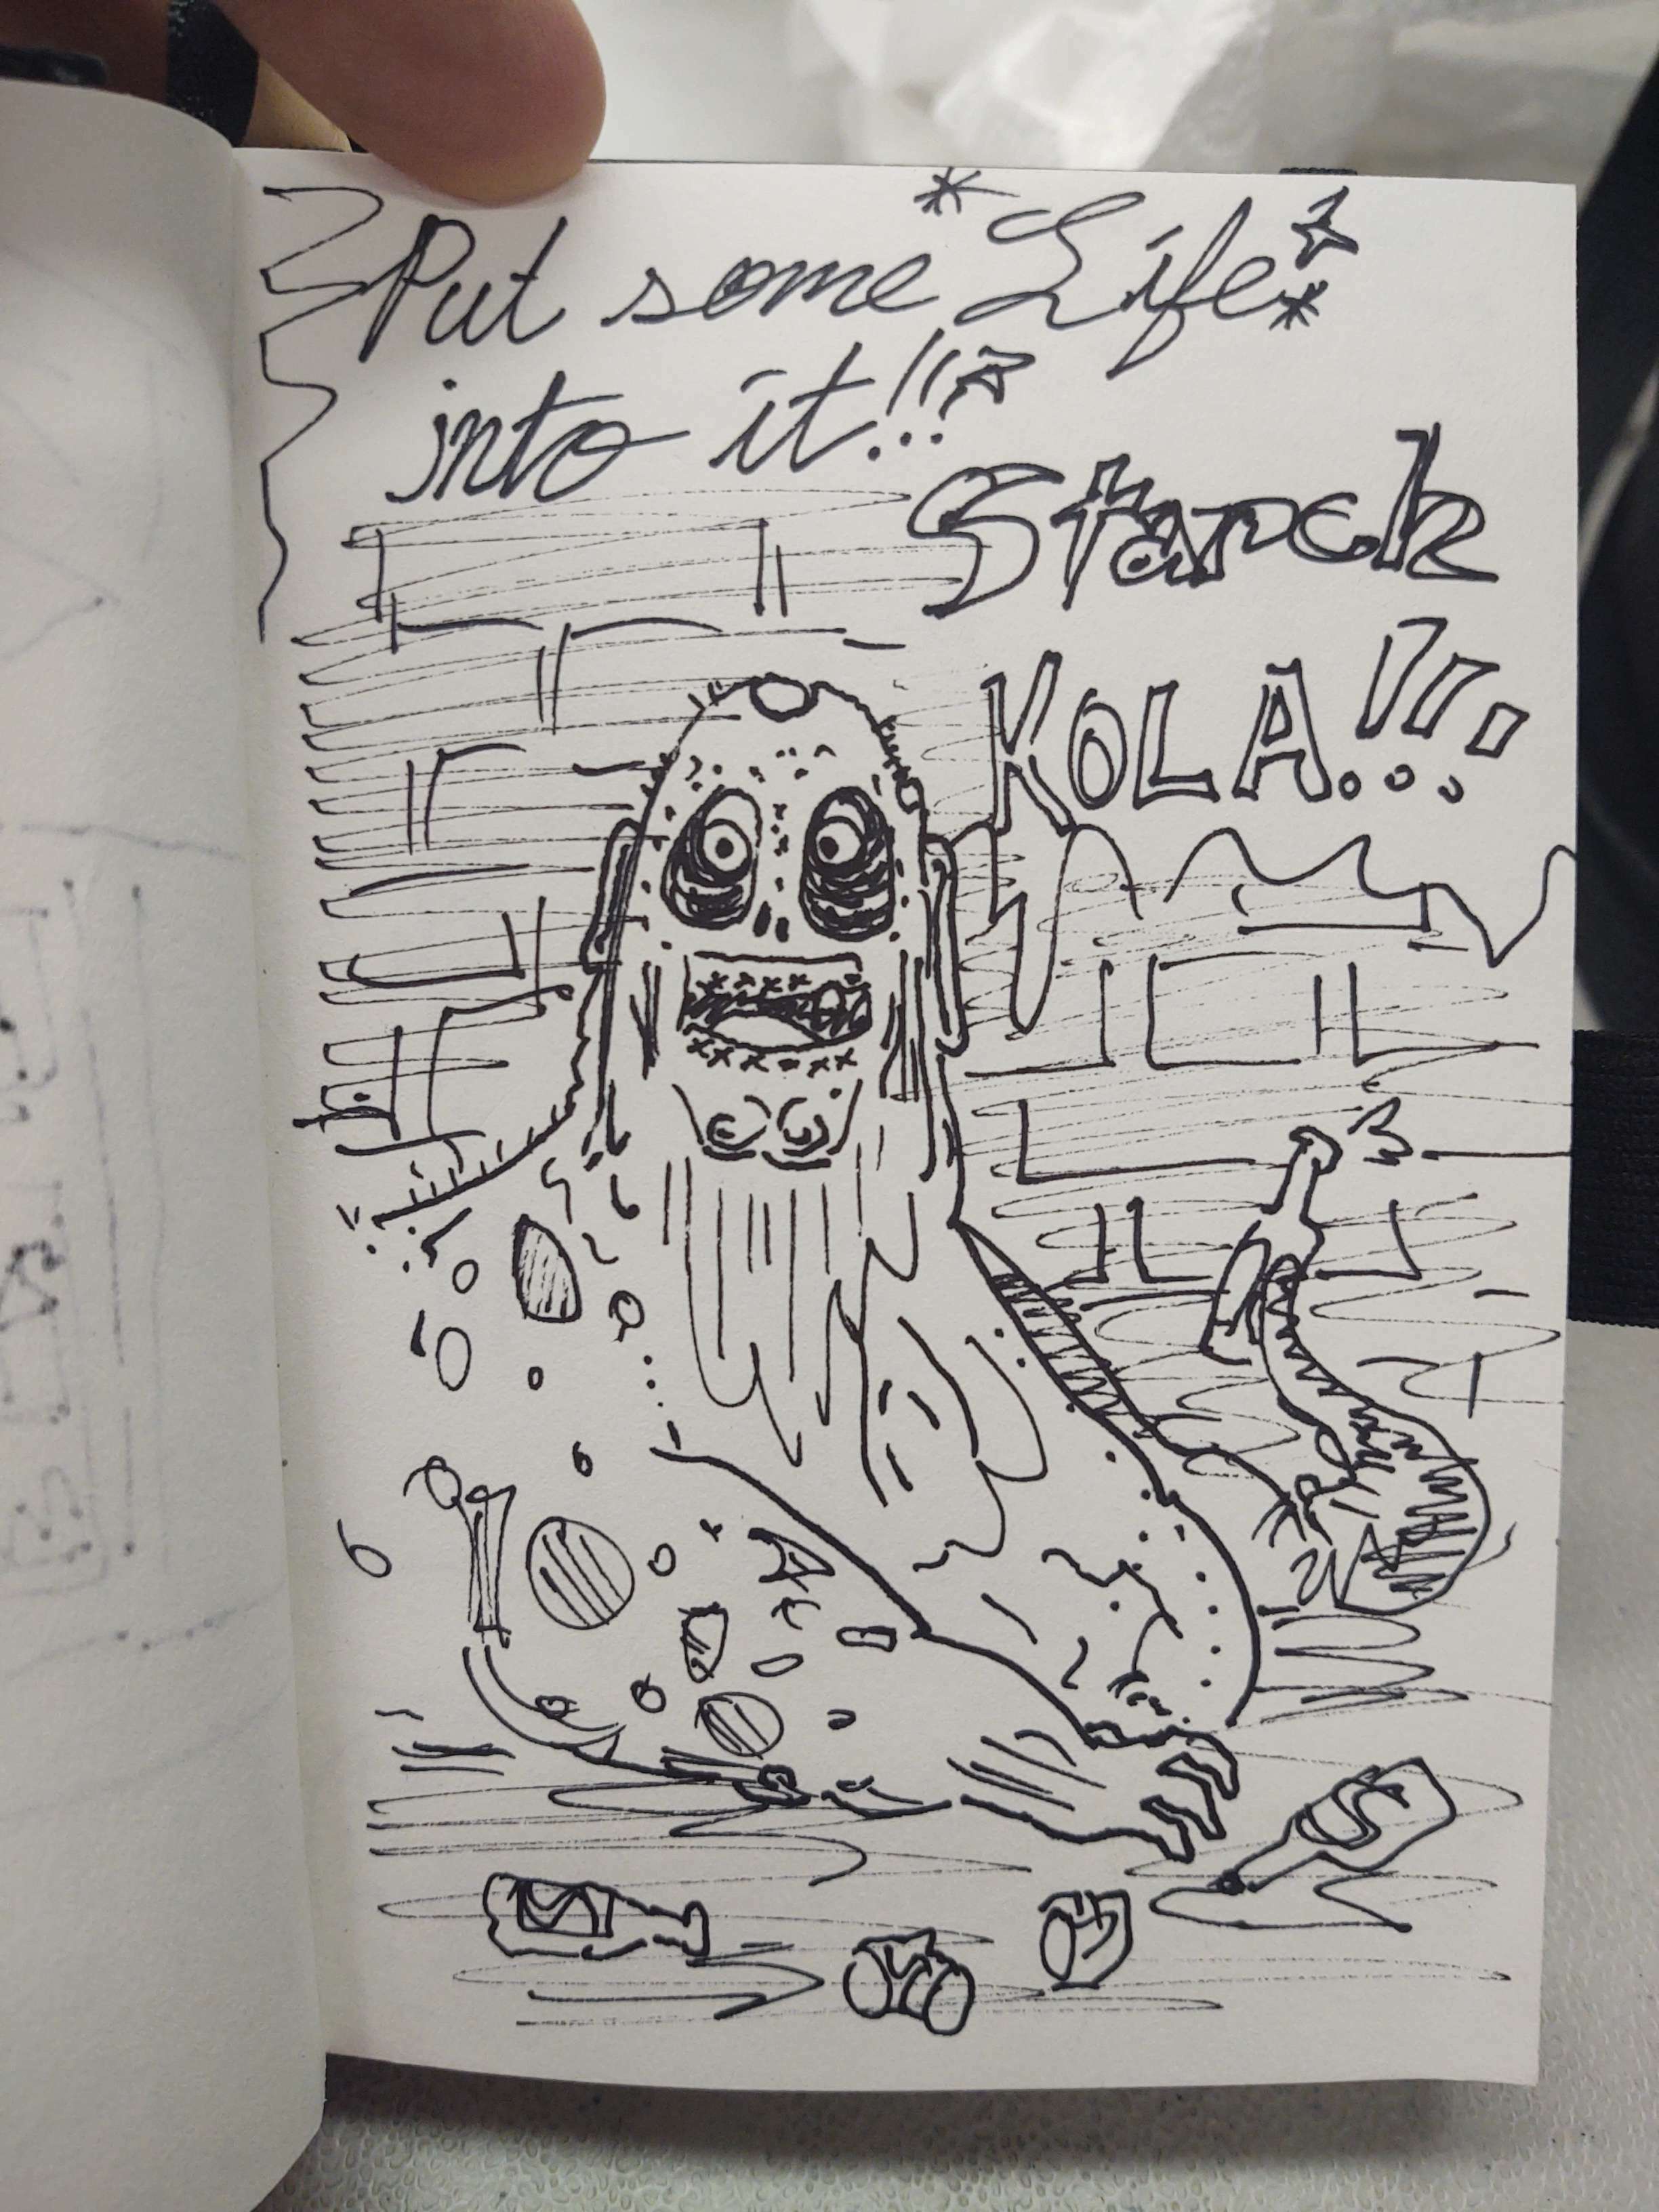 Put some *Life*
into it!!
Starch
KOLA!!!